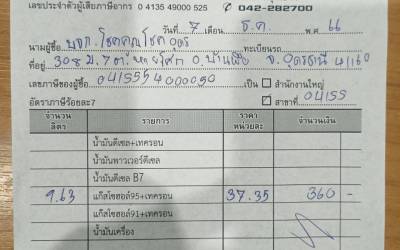 เลขประจำตัวผู้เสียภาษีอากร 0 4135 49000 525 042-282700
วันที่ 7 เดือน ธ.ค. พ.ศ. 66
นามผู้ซื้อ บจก. โชคคูณโชค อุดร ทะเบียนรถ
ที่อยู่ 308 ม.7 ต. อ. บ้านผือ จ. อุดรธานี 41160
เลขภาษีของผู้ซื้อ 0415554000050 เป็น สำนักงานใหญ่
อัตราภาษีร้อยละ7 สาขาที่ 04155
จำนวนลิตร รายการ ราคาหน่วยละ จำนวนเงิน
น้ำมันดีเซล+เทครอน
น้ำมันพาวเวอร์ดีเซล
น้ำมันดีเซล B7
9.63 แก๊สโซฮอล์95+เทครอน 37.35 360 -
แก๊สโซฮอล์91+เทครอน
น้ำมันเครื่อง